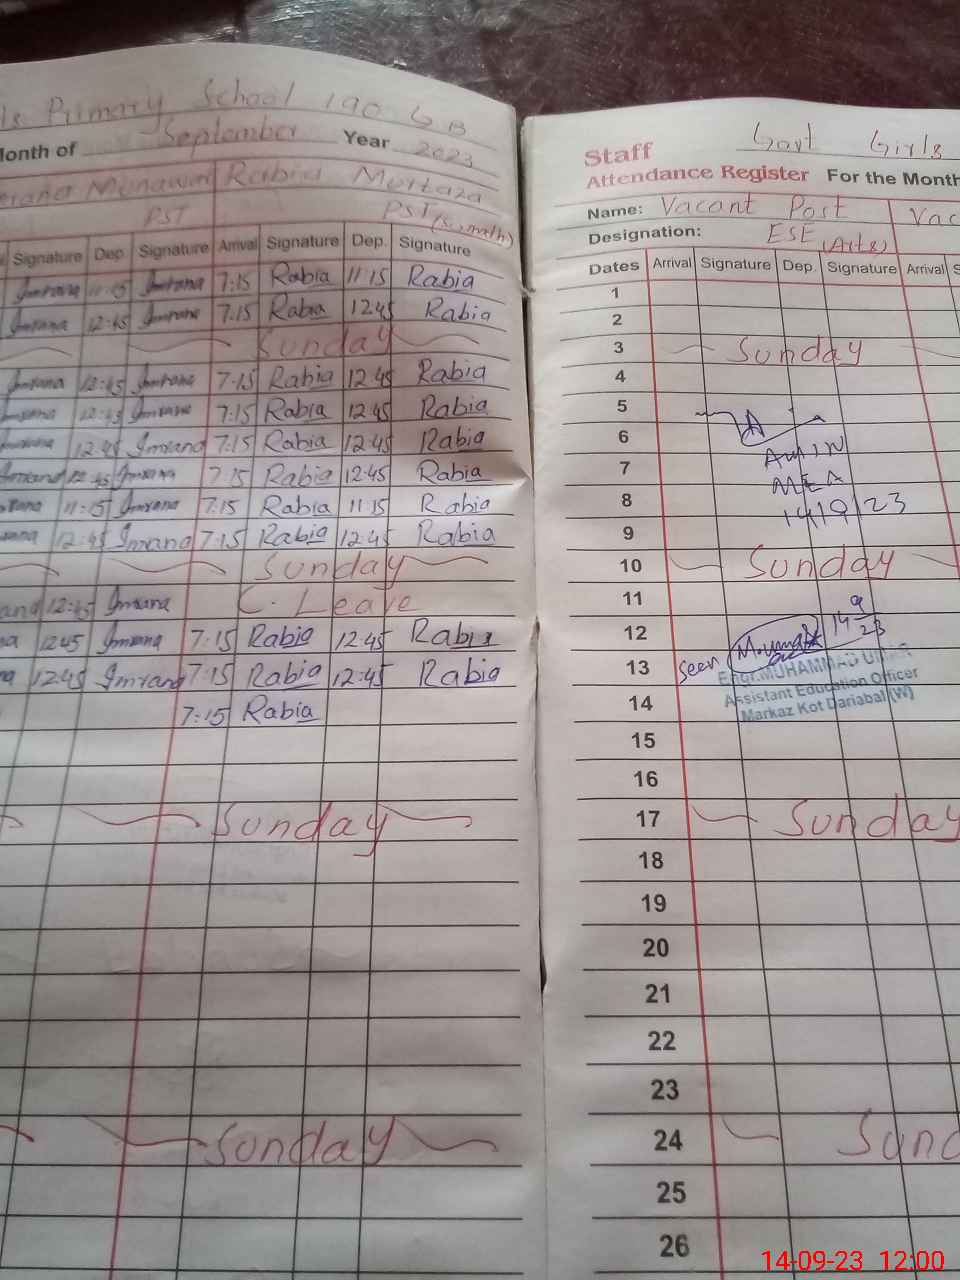 Primary School 190 GB
Month of September Year 2023
Munawar Rabia Murtaza
PST PST
Signature Dep. Signature Arrival Signature Dep. Signature
Imrana 11:15 Imrana 7:15 Rabia 11:15 Rabia
Imrana 12:45 Imrana 7:15 Rabia 12:45 Rabia
Sunday
Imrana 12:45 Imrana 7:15 Rabia 12:45 Rabia
Imrana 12:45 Imrana 7:15 Rabia 12:45 Rabia
Imrana 12:45 Imrana 7:15 Rabia 12:45 Rabia
Imrana 12:45 Imrana 7:15 Rabia 12:45 Rabia
11:15 Imrana 7:15 Rabia 11:15 Rabia
12:45 Imrana 7:15 Rabia 12:45 Rabia
Sunday
12:45 Imrana C. Leave
12:45 Imrana 7:15 Rabia 12:45 Rabia
12:45 Imrana 7:15 Rabia 12:45 Rabia
7:15 Rabia
Sunday
Sunday
Staff Govt Girls
Attendance Register For the Month
Name: Vacant Post Vac
Designation: ESE (Arts)
Dates Arrival Signature Dep. Signature Arrival S
1
2
3 Sunday
4
5
6
7 Amin
8 MEA
9 14/9/23
10 Sunday
11
12 14 9 23
13 Seen M.umar
Engr.MUHAMMAD UMAR
Assistant Education Officer
14 Markaz Kot Dariabal (W)
15
16
17 Sunday
18
19
20
21
22
23
24 Sund
25
26
14-09-23 12:00